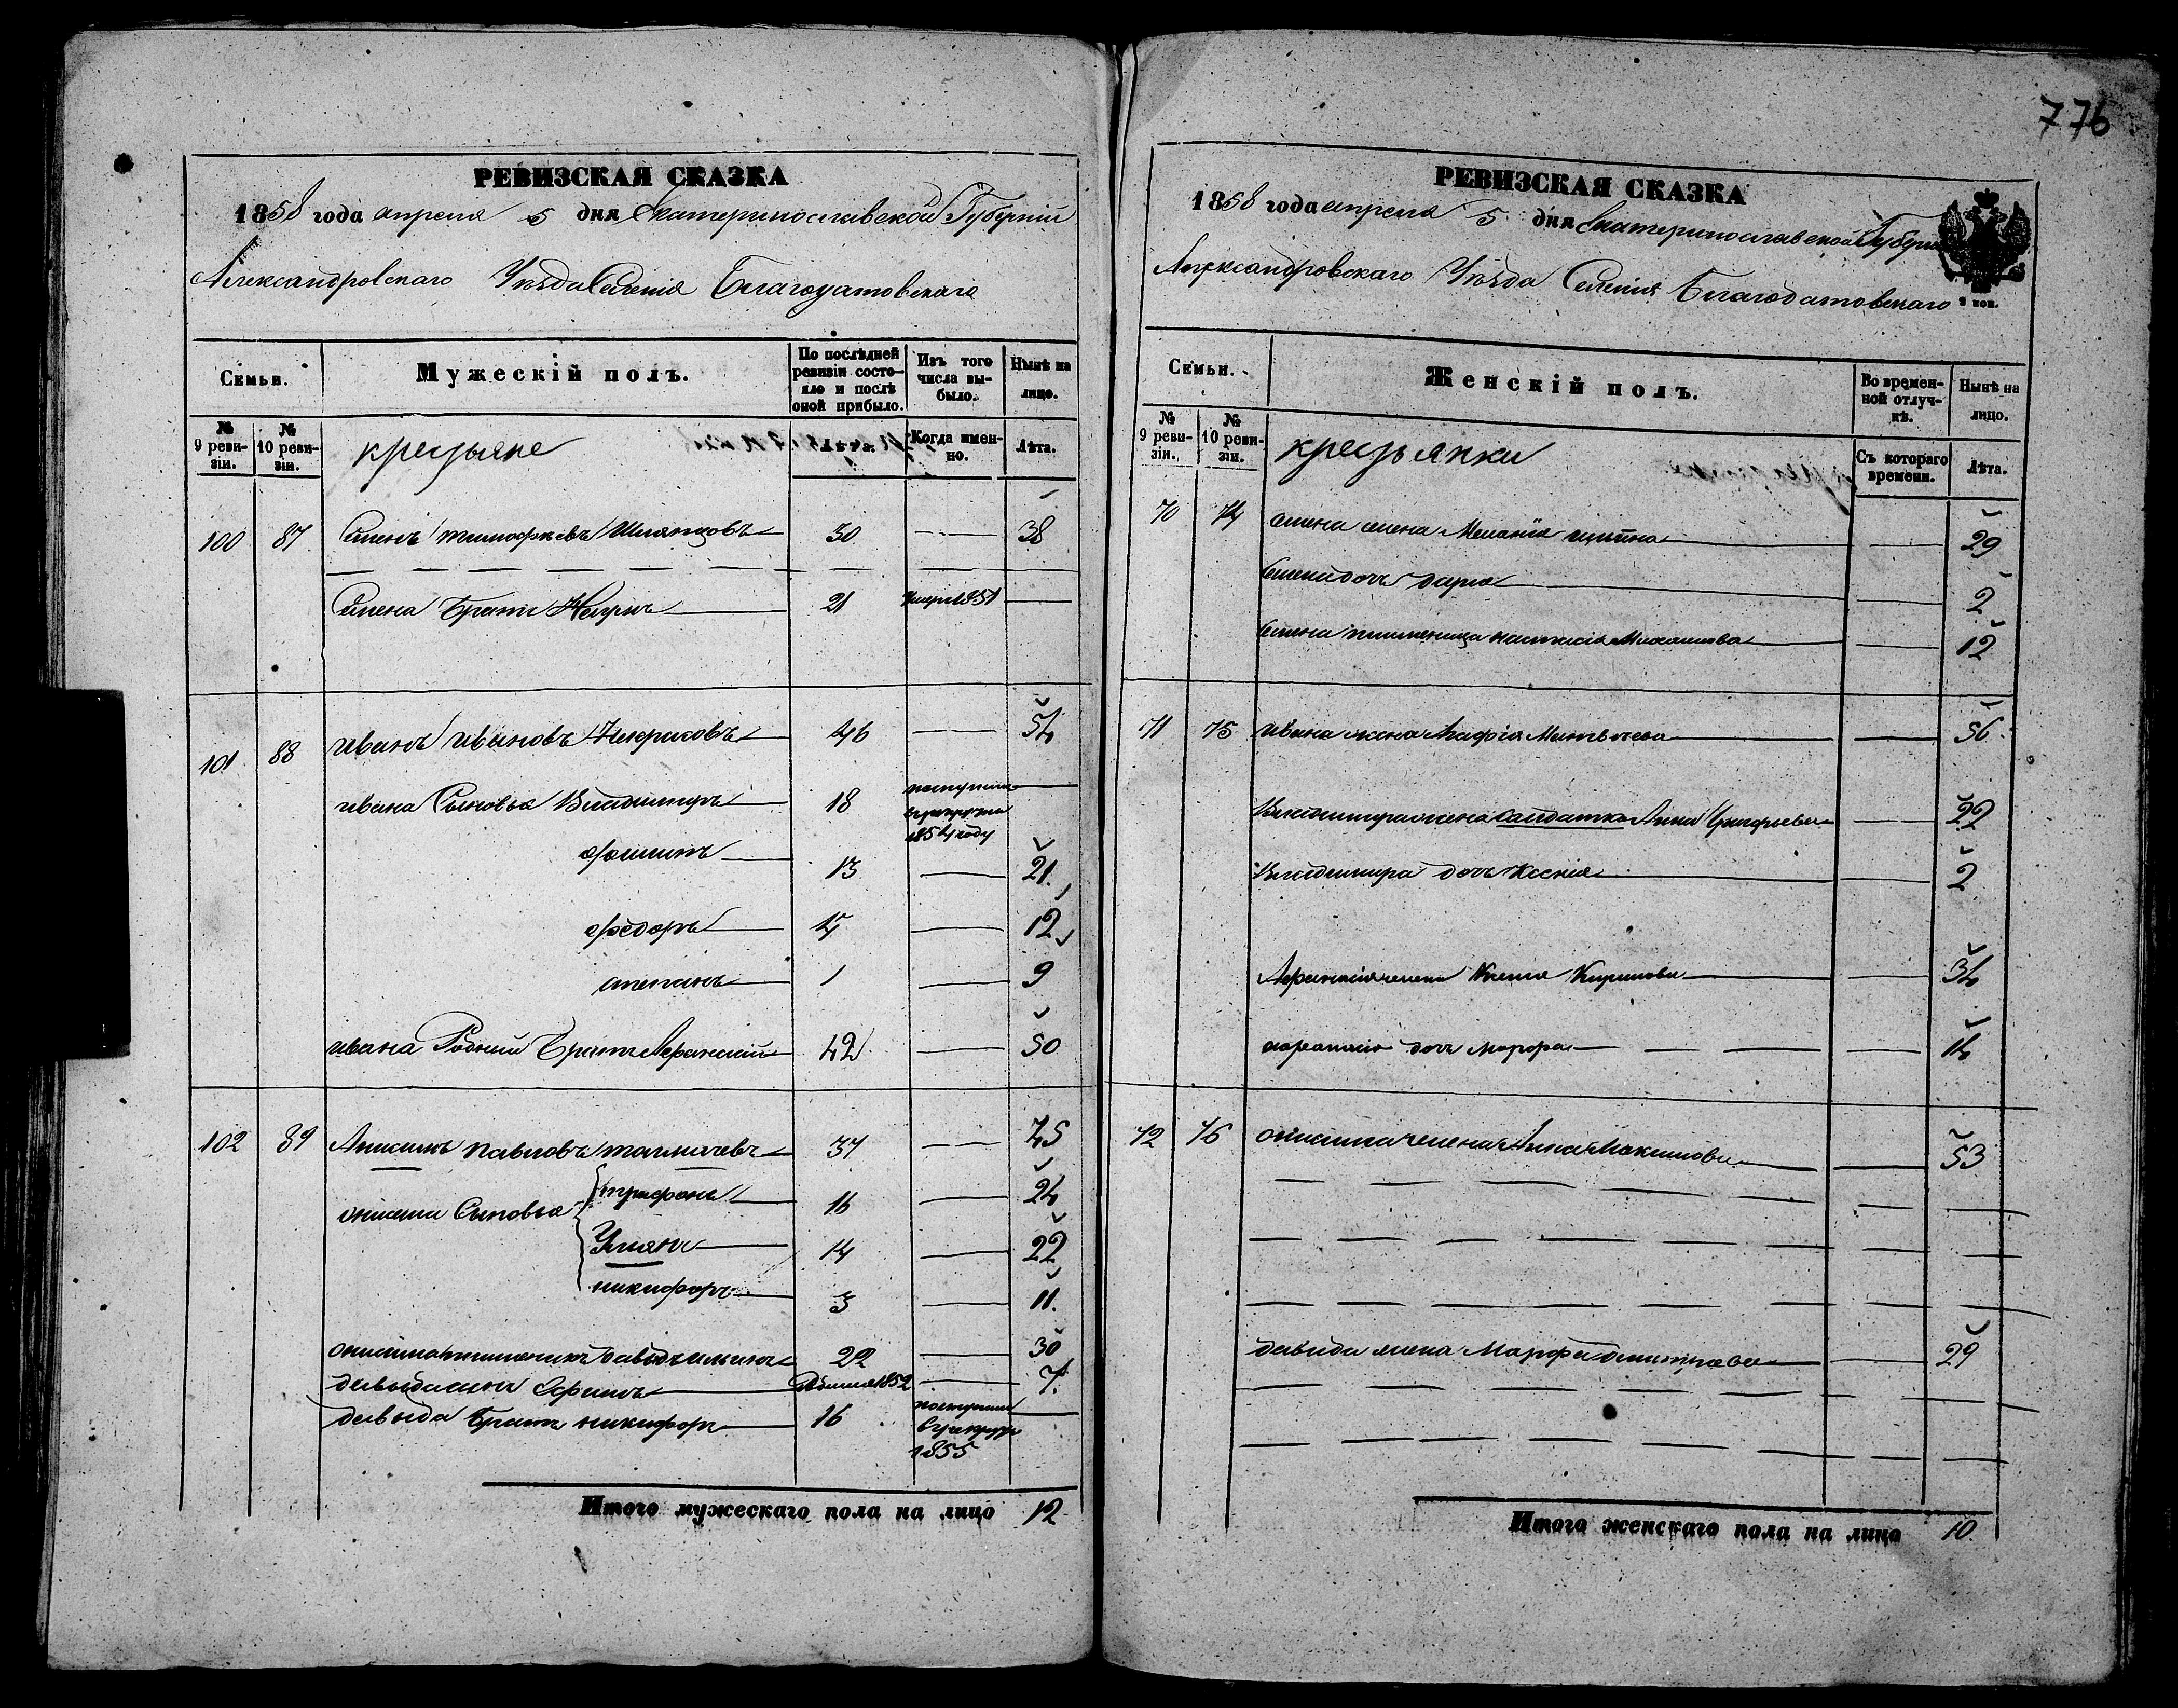 776
РЕВИЗСКАЯ СКАЗКА
1858 года апреля 5 дня Екатеринославской Губерніи
Александровскаго Уѣзда Селенія Благодатовскаго
Семьи.
Мужескій полъ.
По послѣдней ревизіи состояло и послѣ оной прибыло.
Изъ того числа выбыло.
Нынѣ на лицо.
№ 9 ревизіи.
№ 10 ревизіи.
крестьяне
Лѣта.
Когда именно.
Лѣта.
100 87 Семенъ Тимофѣевъ 30 — 38
Семена Братъ 21 умеръ 1851 —
101 88 Иванъ Ивановъ Некрасовъ 46 — 54
Ивана Сыновья Владимиръ 18 поступилъ в рекруты 1854 году —
13 — 21.
Федоръ 4 — 12
Степанъ 1 — 9
Ивана Родный Братъ Афанасий 42 — 50
102 89 Анисимъ Павловъ Толмачевъ 37 — 45
Анисима Сыновья Трифонъ 16 — 24
Ульянъ 14 — 22
Никифоръ 3 — 11.
Онисима племеникъ Давыдъ 22 — 30
Давыда сынъ Ефимъ 1852 — 7.
Давыда Братъ Никифоръ 16 поступилъ в рекруты 1855 —
Итого мужескаго пола на лицо 12
РЕВИЗСКАЯ СКАЗКА
1858 года апреля 5 дня Екатеринославской Губерніи
Александровскаго Уѣзда Селенія Благодатовскаго
2 коп.
Семьи.
Женскій полъ.
Во временной отлучкѣ.
Нынѣ на лицо.
№ 9 ревизіи.
№ 10 ревизіи.
крестьянки
Съ котораго времени.
Лѣта.
70 74 Семена жена Меланія — 29
Семена дочь Дарья — 2
Семена племеница Настасія Михаилова — 12
71 75 Ивана жена Агафія Матвѣева — 56
Владимира жена солдатка Анна Григорьева — 22
Владимира дочь Ксенія — 2
Афанасія жена Ксенія Кирилова — 34
Афанасія дочь Марфа — 14
72 76 Онисима жена Анна Максимова — 53
Давида жена Марфа Дмитриева — 29
Итого женскаго пола на лицо 10.